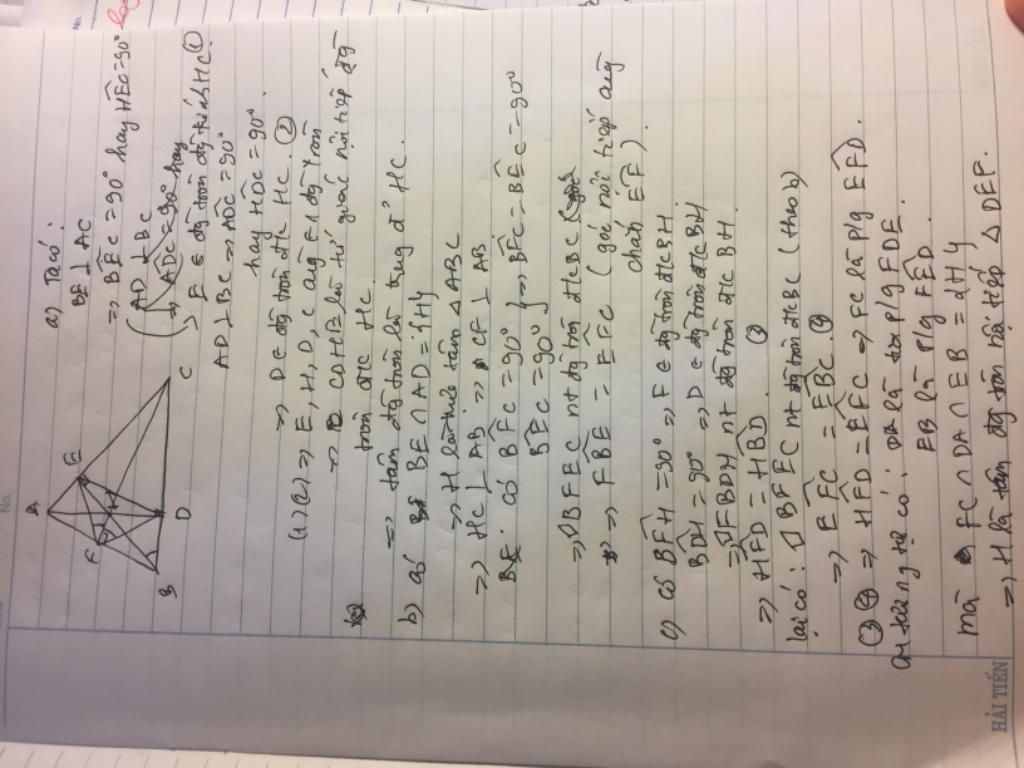 No.
No.
A
F
E
H
B
D
C
a) Ta có:
BE ⊥ AC
=> BÊC = 90° hay HÊC = 90°
( AD ⊥ BC
=> ADC = 90° hay
E ∈ đg tròn đg kính HC ①
AD ⊥ BC => ADC = 90°
hay HDC = 90°
=> D ∈ đg tròn đk HC. ②
(1)(2) => E, H, D, C cùng ∈ 1 đg tròn
=> CDHE là tứ giác nội tiếp đg
tròn đk HC.
=> tâm đg tròn là trung đ' HC.
b) có BE ∩ AD = {H}
=> H là trực tâm △ ABC
=> HC ⊥ AB => CF ⊥ AB
có BFC = 90° } => BFC = BEC = 90°
BEC = 90°
=> ▱ BFEC nt đg tròn đk BC
=> FBE = EFC (góc nội tiếp cùng
chắn EF).
c) có BFH = 90° => F ∈ đg tròn đk BH
BDH = 90° => D ∈ đg tròn đk BH
=> ▱ FBDH nt đg tròn đk BH.
=> HFD = HBD. ③
lại có: ▱ BFEC nt đg tròn đk BC (theo b)
=> EFC = EBC. ④
③ ④ => HFD = EFC => FC là p/g EFD.
cm tương tự có: DA là p/g FDE.
EB là p/g FED
mà FC ∩ DA ∩ EB = {H}
=> H là tâm đg tròn nội tiếp △ DEF.
HẢI TIẾN